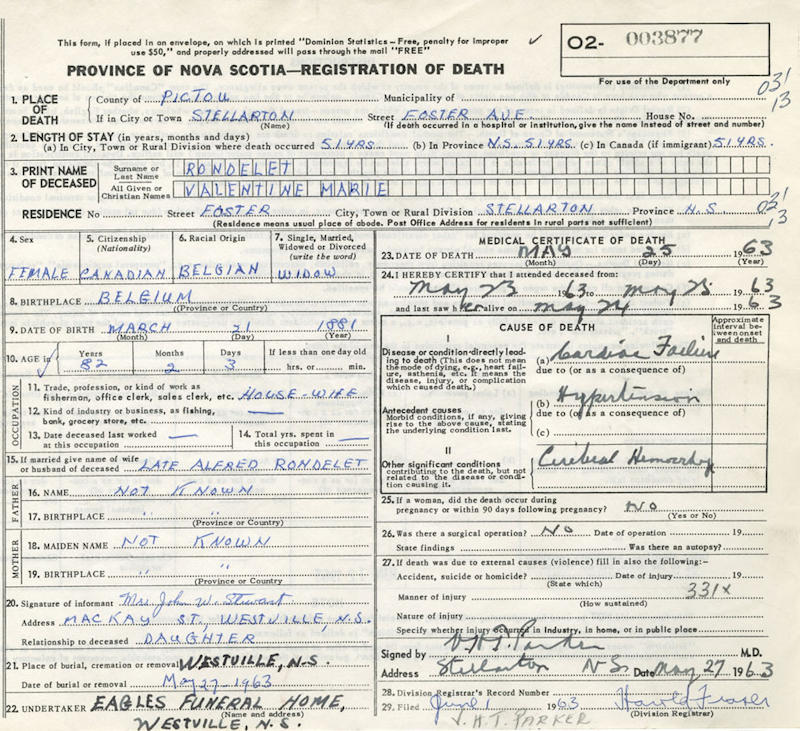 This form, if placed in an envelope, on which is printed "Dominion Statistics—Free, penalty for improper
use $50," and properly addressed will pass through the mail "FREE"
✓
O2- 003877
For use of the Department only
PROVINCE OF NOVA SCOTIA—REGISTRATION OF DEATH
031
13
1. PLACE OF DEATH
County of PICTOU Municipality of
If in City or Town STELLARTON Street FOSTER AVE. House No.
(Name) (If death occurred in a hospital or institution, give the name instead of street and number)
2. LENGTH OF STAY (in years, months and days)
(a) In City, Town or Rural Division where death occurred 51 YRS. (b) In Province N.S. 51 YRS. (c) In Canada (if immigrant) 51 YRS.
3. PRINT NAME OF DECEASED
Surname or Last Name RONDELET
All Given or Christian Names VALENTINE MARIE
RESIDENCE No Street FOSTER City, Town or Rural Division STELLARTON Province N.S.
(Residence means usual place of abode. Post Office Address for residents in rural parts not sufficient)
031
13
4. Sex FEMALE
5. Citizenship (Nationality) CANADIAN
6. Racial Origin BELGIAN
7. Single, Married, Widowed or Divorced (write the word) WIDOW
8. BIRTHPLACE BELGIUM
(Province or Country)
9. DATE OF BIRTH MARCH 21 1881
(Month) (Day) (Year)
10. AGE in Years Months Days If less than one day old
✓ 82 2 3 hrs. or min.
OCCUPATION
11. Trade, profession, or kind of work as
fisherman, office clerk, sales clerk, etc. HOUSE-WIFE
12. Kind of industry or business, as fishing,
bank, grocery store, etc. —
13. Date deceased last worked
at this occupation —
14. Total yrs. spent in
this occupation —
15. If married give name of wife
or husband of deceased LATE ALFRED RONDELET
FATHER
16. NAME NOT KNOWN
17. BIRTHPLACE " "
(Province or Country)
MOTHER
18. MAIDEN NAME NOT KNOWN
19. BIRTHPLACE " "
(Province or Country)
20. Signature of informant Mrs John W. Stewart
Address MACKAY ST., WESTVILLE, N.S.
Relationship to deceased DAUGHTER
21. Place of burial, cremation or removal WESTVILLE, N.S.
Date of burial or removal May 27, 1963
22. UNDERTAKER EAGLES FUNERAL HOME,
(Name and address)
WESTVILLE, N.S.
MEDICAL CERTIFICATE OF DEATH
23. DATE OF DEATH MAY 25 1963
(Month) (Day) (Year)
24. I HEREBY CERTIFY that I attended deceased from:
May 23 1963 to May 25 1963
and last saw her alive on May 24 1963
CAUSE OF DEATH
Approximate interval between onset and death
I
Disease or condition directly leading to death (This does not mean the mode of dying, e.g., heart failure, asthenia, etc. It means the disease, injury, or complication which caused death.)
(a) Cardiac Failure
due to (or as a consequence of)
Antecedent causes
Morbid conditions, if any, giving rise to the above cause, stating the underlying condition last.
(b) Hypertension
due to (or as a consequence of)
(c)
II
Other significant conditions
contributing to the death, but not related to the disease or condition causing it.
Cerebral Hemorrhage
25. If a woman, did the death occur during
pregnancy or within 90 days following pregnancy? NO
(Yes or No)
26. Was there a surgical operation? NO Date of operation 19
State findings Was there an autopsy?
27. If death was due to external causes (violence) fill in also the following:-
Accident, suicide or homicide? Date of injury 19
(State which)
Manner of injury 331X
(How sustained)
Nature of injury
Specify whether injury occurred in industry, in home, or in public place
Signed by V.H.T. Parker M.D.
Address Stellarton N.S. Date May 27 1963
28. Division Registrar's Record Number
29. Filed June 1 1963 Harold Fraser
(Division Registrar)
V.H.T. PARKER